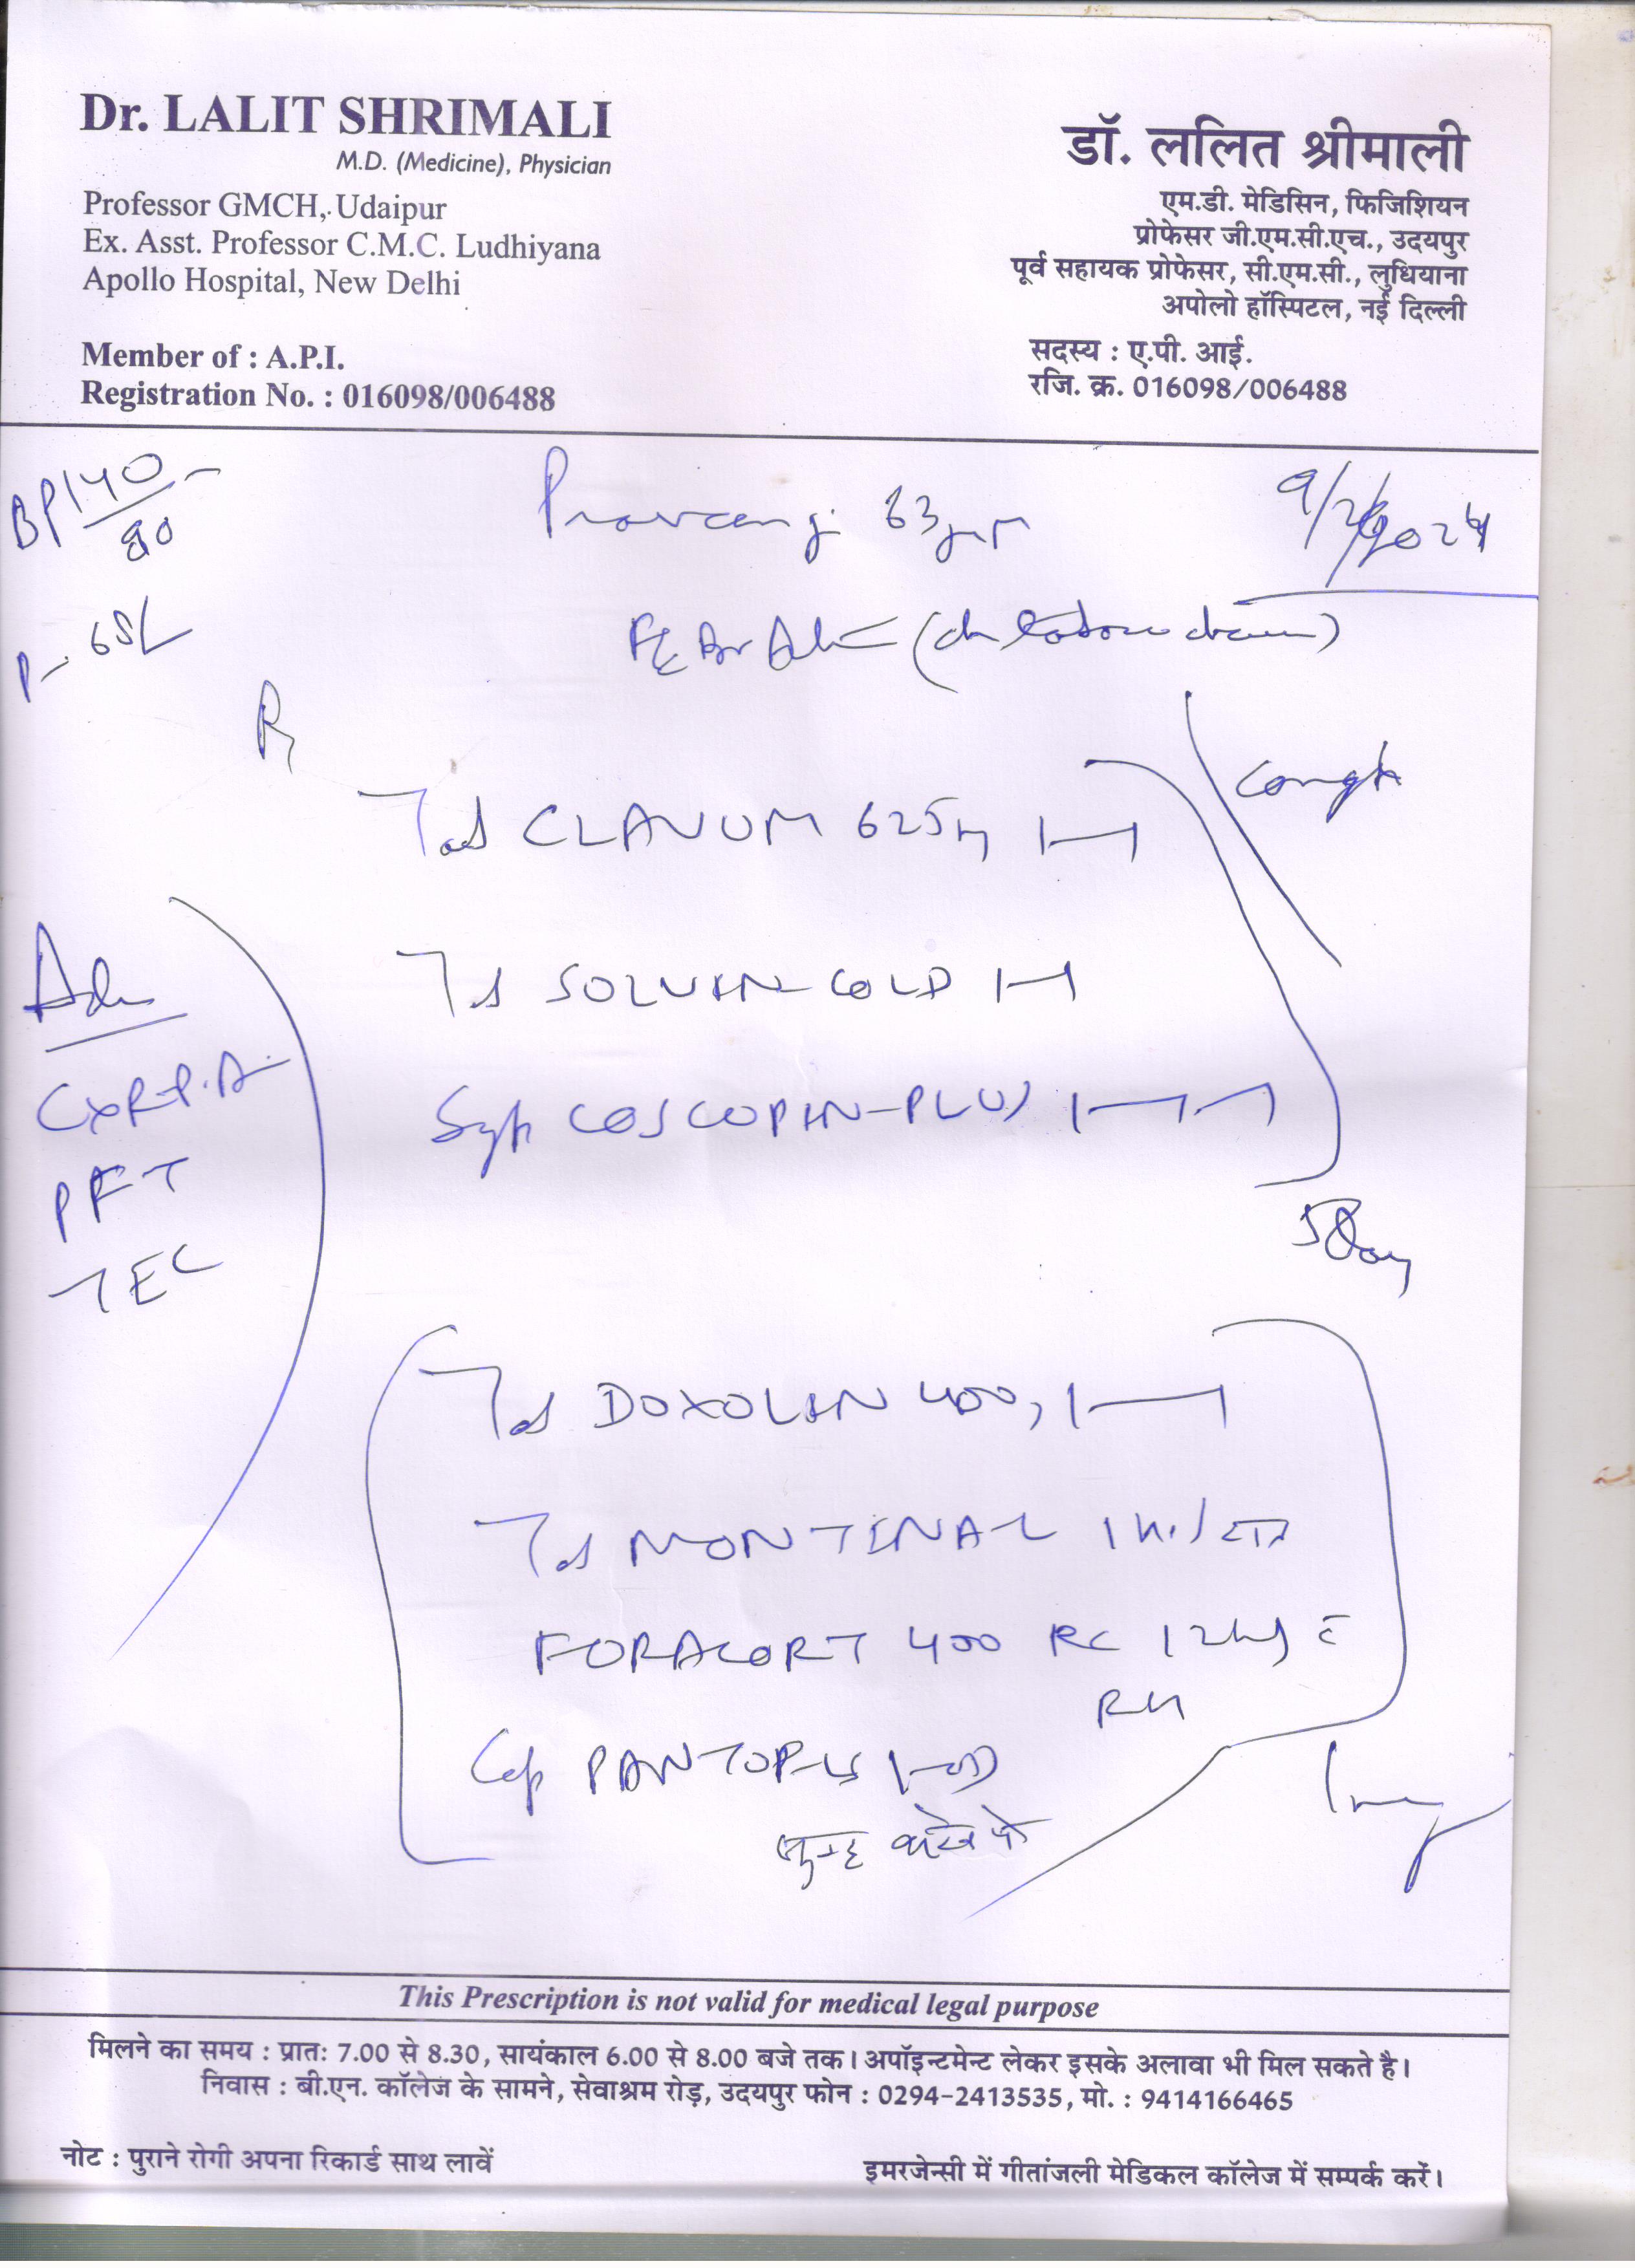 Dr. LALIT SHRIMALI
M.D. (Medicine), Physician
Professor GMCH, Udaipur
Ex. Asst. Professor C.M.C. Ludhiyana
Apollo Hospital, New Delhi
Member of : A.P.I.
Registration No. : 016098/006488
डॉ. ललित श्रीमाली
एम.डी. मेडिसिन, फिजिशियन
प्रोफेसर जी.एम.सी.एच., उदयपुर
पूर्व सहायक प्रोफेसर, सी.एम.सी., लुधियाना
अपोलो हॉस्पिटल, नई दिल्ली
सदस्य : ए.पी. आई.
रजि. क्र. 016098/006488
BP 140/80
63 yrs
Cough
Tab CLAVUM 625
Tab SOLVIN-COLD
Syp COSCOPIN-PLUS
5 Day
Adv
CXR P.A
PFT
TEC
Tab DOXOLIN 400
Tab
FORACORT 400 RC
Cap PANTOP-
This Prescription is not valid for medical legal purpose
मिलने का समय : प्रातः 7.00 से 8.30, सायंकाल 6.00 से 8.00 बजे तक। अपॉइन्टमेन्ट लेकर इसके अलावा भी मिल सकते है।
निवास : बी.एन. कॉलेज के सामने, सेवाश्रम रोड़, उदयपुर फोन : 0294-2413535, मो. : 9414166465
नोट : पुराने रोगी अपना रिकार्ड साथ लावें
इमरजेन्सी में गीतांजली मेडिकल कॉलेज में सम्पर्क करें।